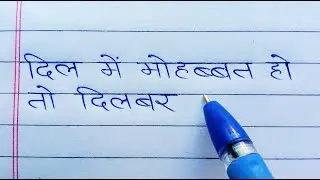 दिल में मोहब्बत हो
तो दिलबर